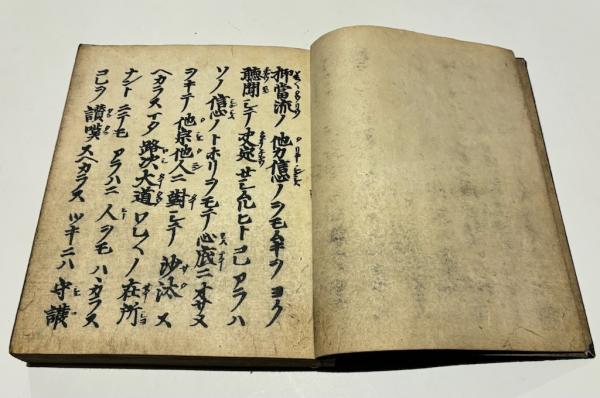 抑當流ノ他力信心ノヲモムキヲヨク
聽聞シテ決定セシムルヒトコレアラハ
ソノ信心ノトホリヲモテ心底ニオサメ
ヲキテ他宗他人ニ對シテ沙汰ス
ヘカラスマタ路次大道ワレ〱ノ在所
ナントニテモアラハニ人ヲモハヽカラス
コレヲ讃嘆スヘカラスツキニハ守護